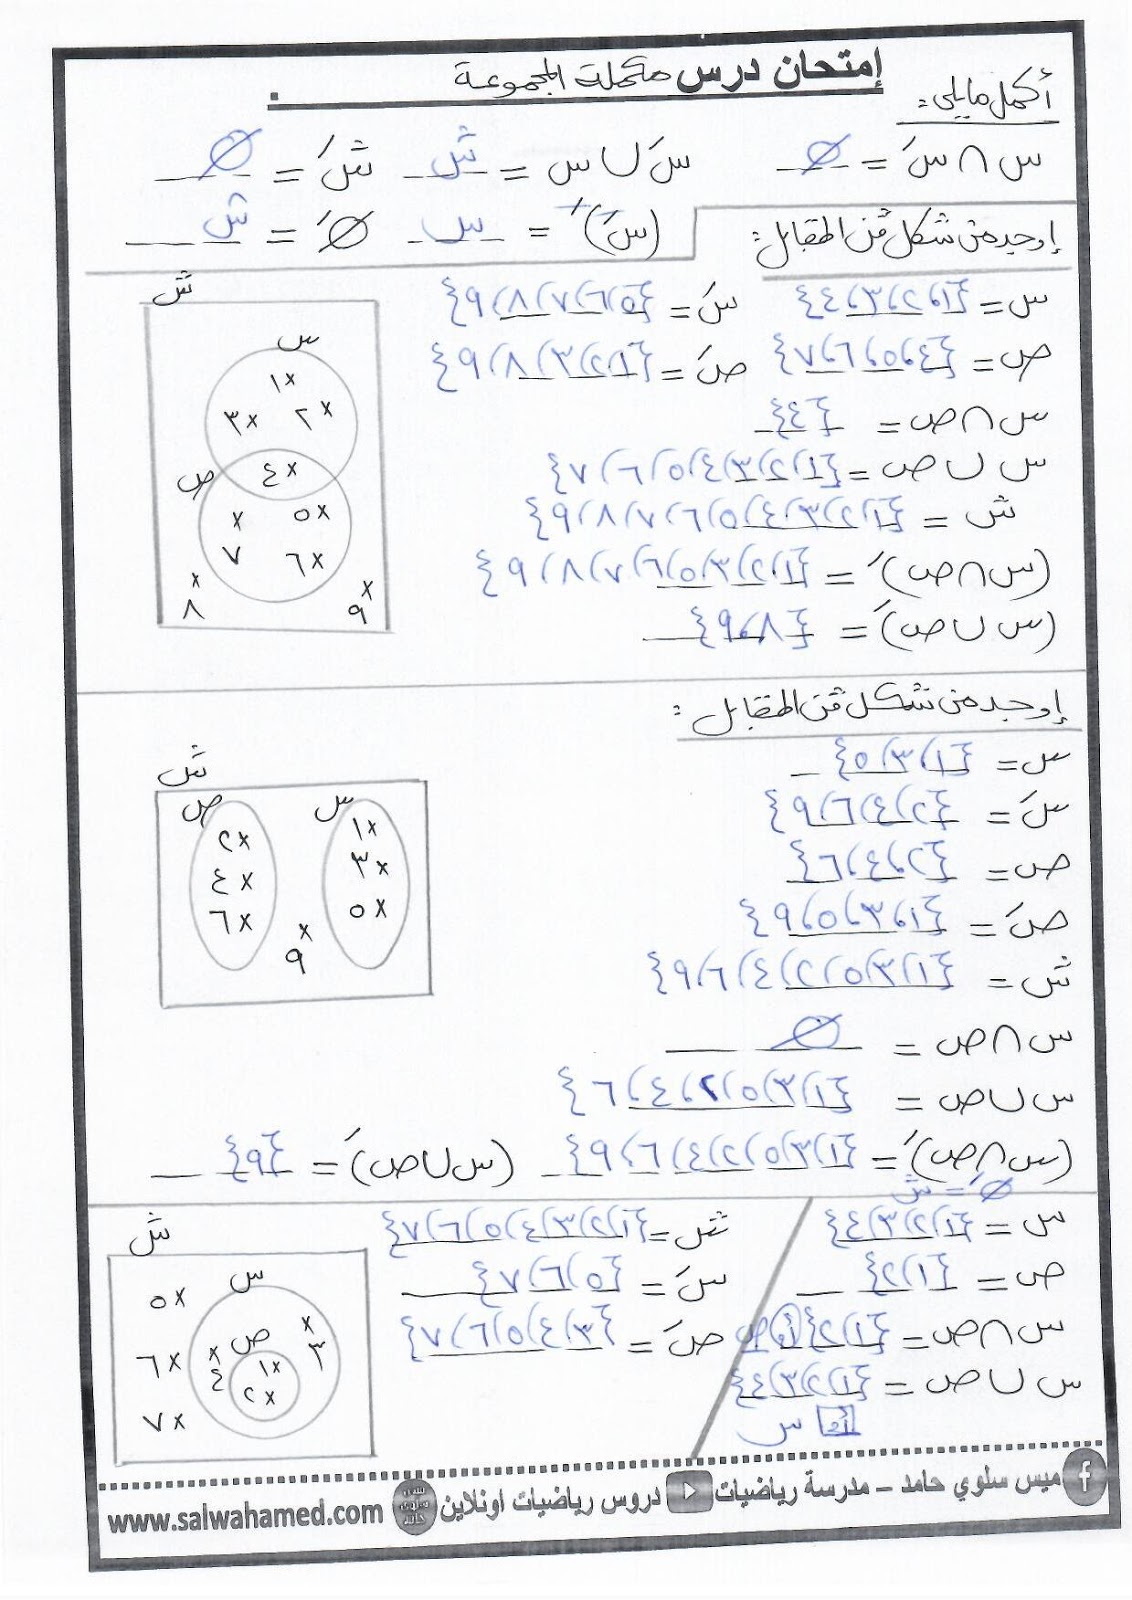 إمتحان درس مكملة المجموعة
أكمل ما يلي:
س ∩ سَ = ∅ سَ ∪ س = ش شَ = ∅
(سَ)َ = س ∅َ = ش
إوجد من شكل ڤن المقابل:
س = {١،٢،٣،٤} سَ = {٥،٦،٧،٨،٩}
ص = {٤،٥،٦،٧} صَ = {١،٢،٣،٨،٩}
س ∩ ص = {٤}
س ∪ ص = {١،٢،٣،٤،٥،٦،٧}
ش = {١،٢،٣،٤،٥،٦،٧،٨،٩}
(س ∩ ص)َ = {١،٢،٣،٥،٦،٧،٨،٩}
(س ∪ ص)َ = {٨،٩}
ش
س
×١
×٣ ×٢
ص ×٤
×٧ ×٥
×٦
×٨ ×٩
إوجد من شكل ڤن المقابل:
س = {١،٣،٥}
سَ = {٢،٤،٦،٩}
ص = {٢،٤،٦}
صَ = {١،٣،٥،٩}
ش = {١،٣،٥،٢،٤،٦،٩}
س ∩ ص = ∅
س ∪ ص = {١،٣،٥،٢،٤،٦}
(س ∩ ص)َ = {١،٣،٥،٢،٤،٦،٩} (س ∪ ص)َ = {٩}
∅َ = ش
ش
ص س
×٢ ×١
×٤ ×٣
×٦ ×٥
×٩
س = {١،٢،٣،٤} ش = {١،٢،٣،٤،٥،٦،٧}
ص = {١،٢} سَ = {٥،٦،٧}
س ∩ ص = {١،٢} أو ص صَ = {٣،٤،٥،٦،٧}
س ∪ ص = {١،٢،٣،٤}
أو س
ش
س
×٥
ص ×٣
×٦ ×٤ ×١
×٢
×٧
ميس سلوي حامد - مدرسة رياضيات دروس رياضيات اونلاين www.salwahamed.com